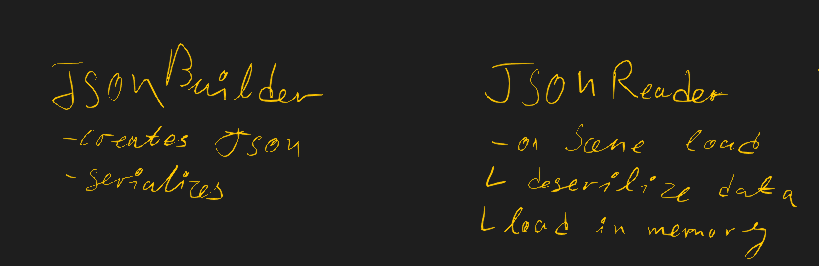 JSONBuilder
-creates Json
-serializes
JSONReader
- on Scene load
L deserilize data
L load in memory